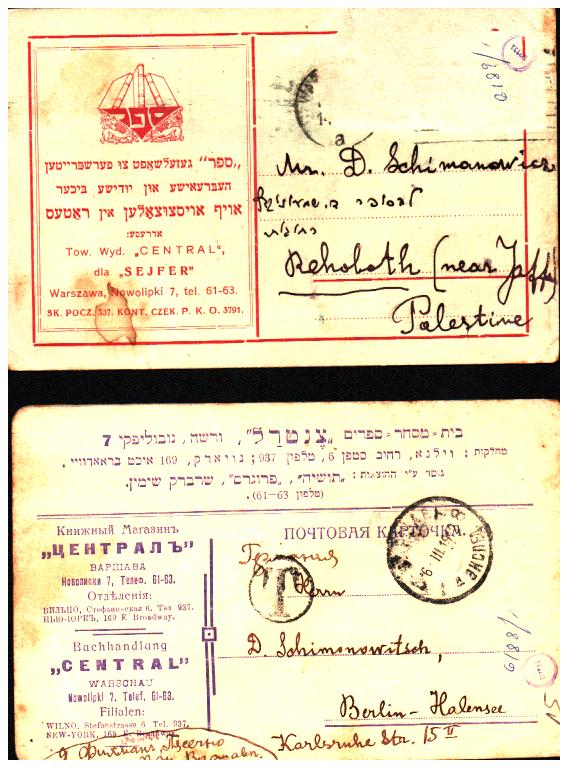 ספר
„ספר" געזעלשאפט צו פערשפרייטען
העברעאישע און יודישע ביכער
אויף אויסצוצאָלען אין ראַטעס
אדרעסע:
Tow. Wyd. „CENTRAL",
dla „SEJFER"
Warszawa, Nowolipki 7, tel. 61-63.
SK. POCZ. 337. KONT. CZEK. P. K. O. 3791.
Mr. D. Schimanowicz
Rehoboth (near Jaffa)
Palestine
בית=מסחר=ספרים „צנטרל", ורשה, נובוליפקי 7
מחלקות: ווילנא, רחוב סטפן 6, טלפון 937; ניו־יארק, 169 איסט בראדוויי.
„תושיה", „פרוגרס", שרברק שימין.
(טלפון 61—63)
Книжный Магазинъ
„ЦЕНТРАЛЪ"
ВАРШАВА
Новолипки 7, Телеф. 61-63.
Отдѣленія:
ВИЛЬНО, Стефановская 6. Тел 937.
НЬЮ-ІОРКЪ, 169 E. Broadway.
Buchhandlung
„CENTRAL"
WARSCHAU
Nowolipki 7, Telef. 61-63.
Filialen:
WILNO, Stefanstrasse 6 Tel. 937.
NEW-YORK, 169 E. Broadway.
ПОЧТОВАЯ КАРТОЧКА.
Германия
T
Herrn
D. Schimonowitsch,
Berlin-Halensee
Karlsruhe Str. 15 II